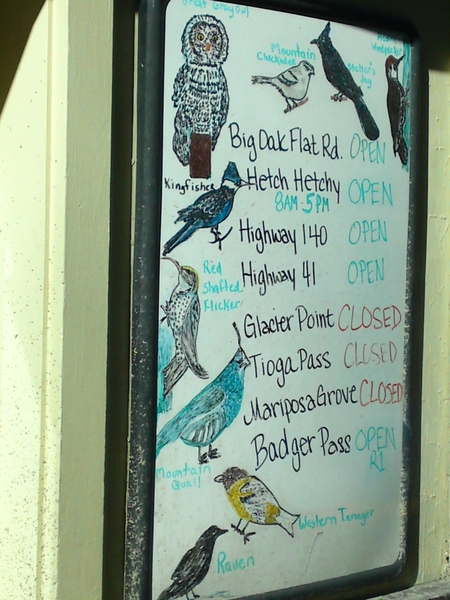 Great Gray Owl
Mountain
Chickadee
Steller's
Jay
Big Oak Flat Rd. OPEN
Kingfisher
Hetch Hetchy OPEN
8AM-5PM
Highway 140 OPEN
Highway 41 OPEN
Red
Shafted
Flicker
Glacier Point CLOSED
Tioga Pass CLOSED
Mariposa Grove CLOSED
Badger Pass OPEN
R1
Mountain
Quail
Western Tanager
Raven